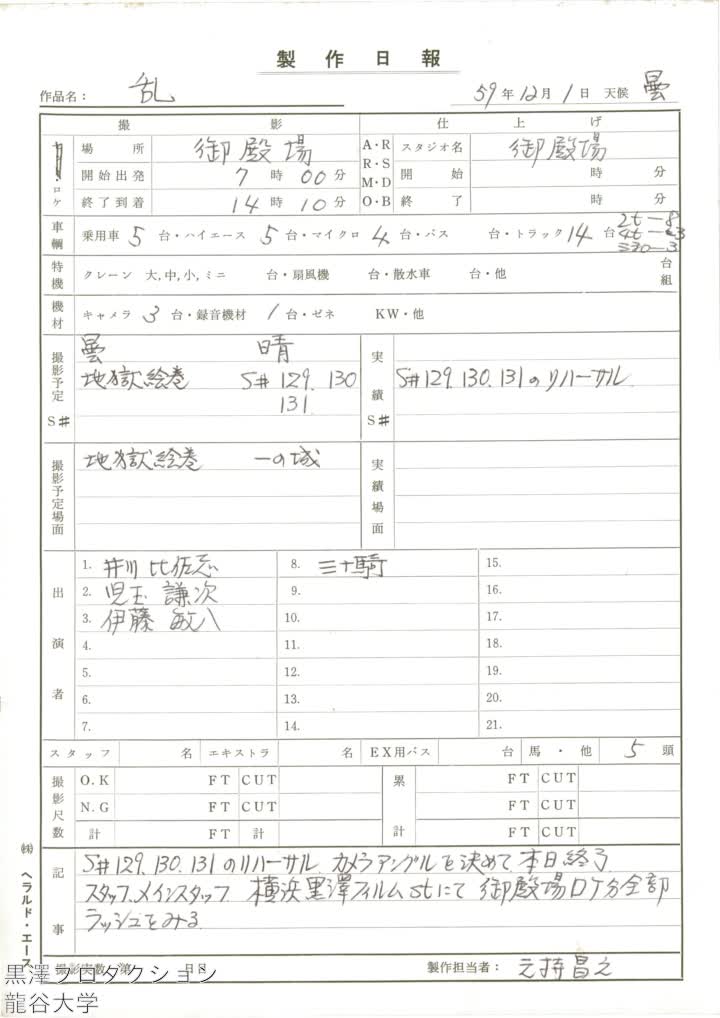 製作日報
作品名： 乱 59年12月1日 天候 曇
撮影 仕上げ
ロケ 場所 御殿場 A・R R・S M・D O・B スタジオ名 御殿場
開始出発 7時00分 開始 時 分
終了到着 14時10分 終了 時 分
車輌 乗用車 5 台・ハイエース 5 台・マイクロ 4 台・バス 台・トラック 14 台 2t-8
特機 クレーン 大,中,小,ミニ 台・扇風機 台・散水車 台・他 台組
機材 キャメラ 3 台・録音機材 1 台・ゼネ KW・他
撮影予定 S# 曇 晴 実績 S#
地獄絵巻 S# 129. 130 S# 129. 130. 131のリハーサル
131
撮影予定場面 地獄絵巻 一の城 実績場面
出演者
1. 井川 比佐志 8. 三十騎 15.
2. 児玉 謙次 9. 16.
3. 伊藤 敏八 10. 17.
4. 11. 18.
5. 12. 19.
6. 13. 20.
7. 14. 21.
スタッフ 名 エキストラ 名 EX用バス 台 馬・他 5 頭
撮影尺数 O.K FT CUT 累計 FT CUT
N.G FT CUT FT CUT
計 FT 計 FT CUT
記事
S# 129. 130. 131のリハーサル. カメラアングルを決めて. 本日終了
スタッフ.メインスタッフ. 横浜黒澤フィルムstにて 御殿場ロケ分全部
ラッシュをみる
撮影実数 第 日目 製作担当者：
㈱ ヘラルド・エース
黒澤プロダクション
龍谷大学